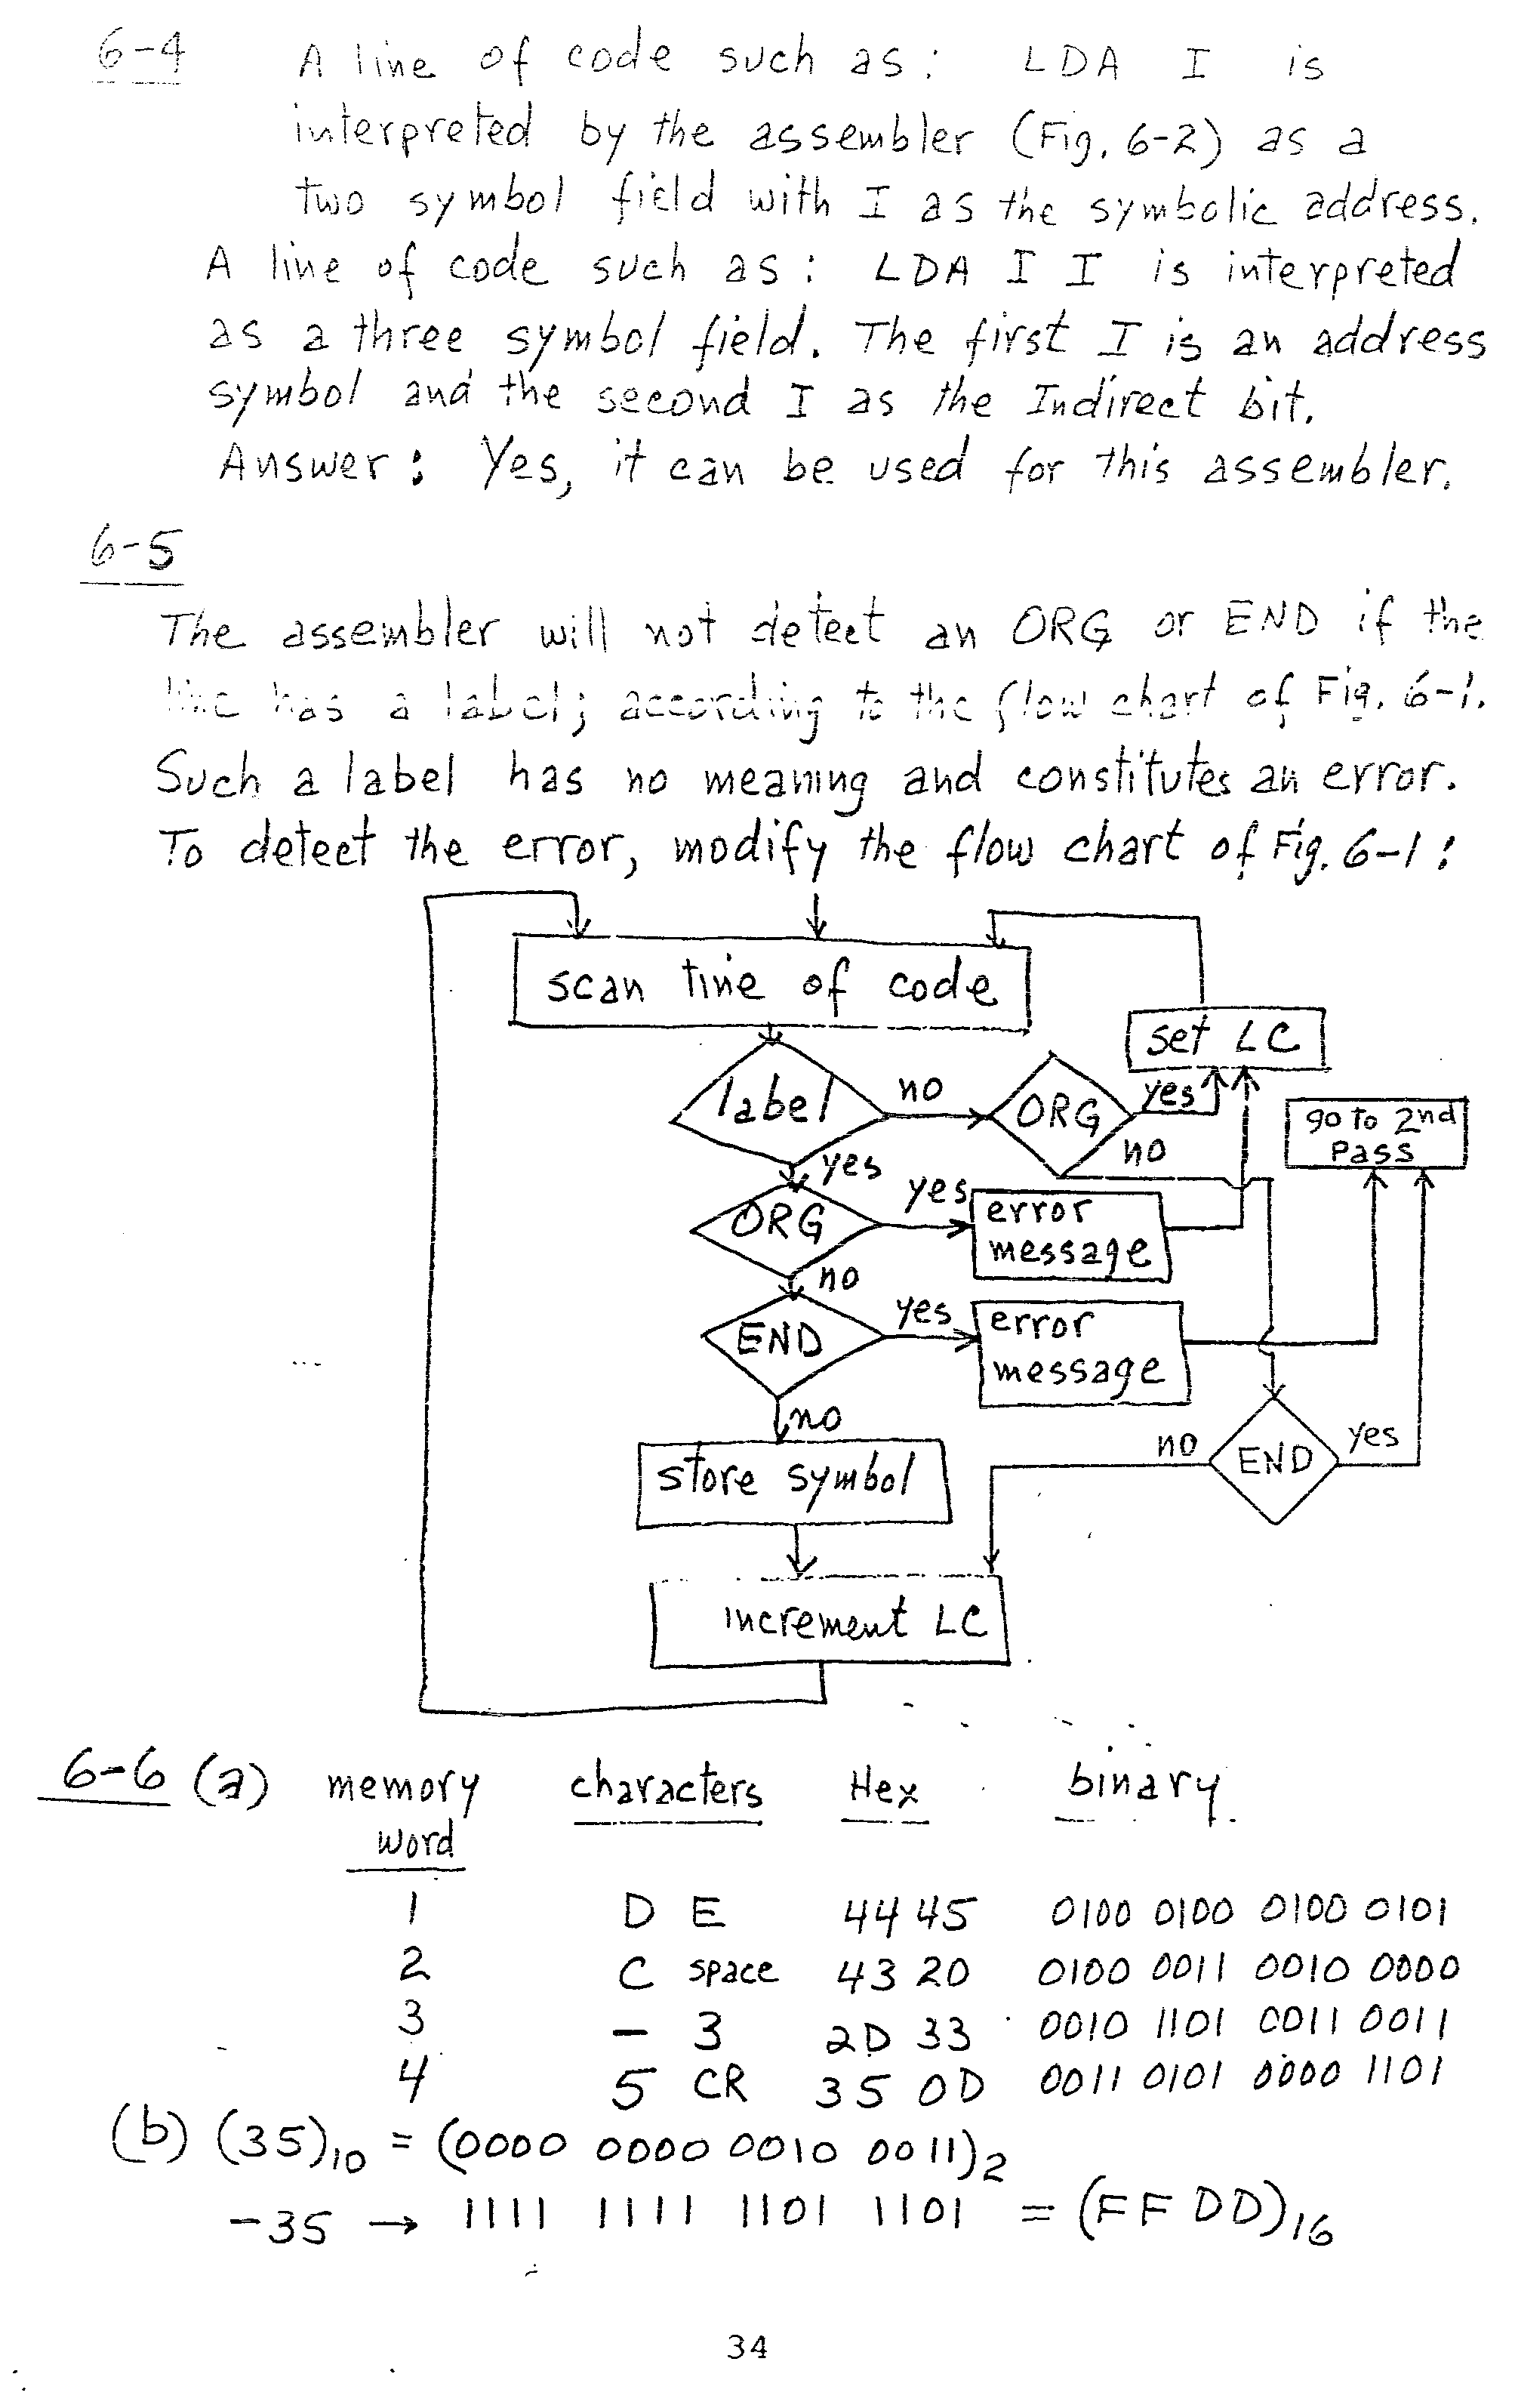 6-4 A line of code such as: LDA I is
interpreted by the assembler (Fig. 6-2) as a
two symbol field with I as the symbolic address.
A line of code such as: LDA I I is interpreted
as a three symbol field. The first I is an address
symbol and the second I as the Indirect bit.
Answer: Yes, it can be used for this assembler.
6-5
The assembler will not detect an ORG or END if the
line has a label; according to the flow chart of Fig. 6-1.
Such a label has no meaning and constitutes an error.
To detect the error, modify the flow chart of Fig. 6-1:
scan line of code
set LC
label no ORG yes
go to 2nd
Pass
yes no
ORG yes error
message
no
END yes error
message
no
store symbol
no END yes
increment LC
6-6 (a) memory characters Hex binary
word
1 D E 44 45 0100 0100 0100 0101
2 C space 43 20 0100 0011 0010 0000
3 - 3 2D 33 0010 1101 0011 0011
4 5 CR 35 0D 0011 0101 0000 1101
(b) (35)10 = (0000 0000 0010 0011)2
-35 → 1111 1111 1101 1101 = (FFDD)16
34